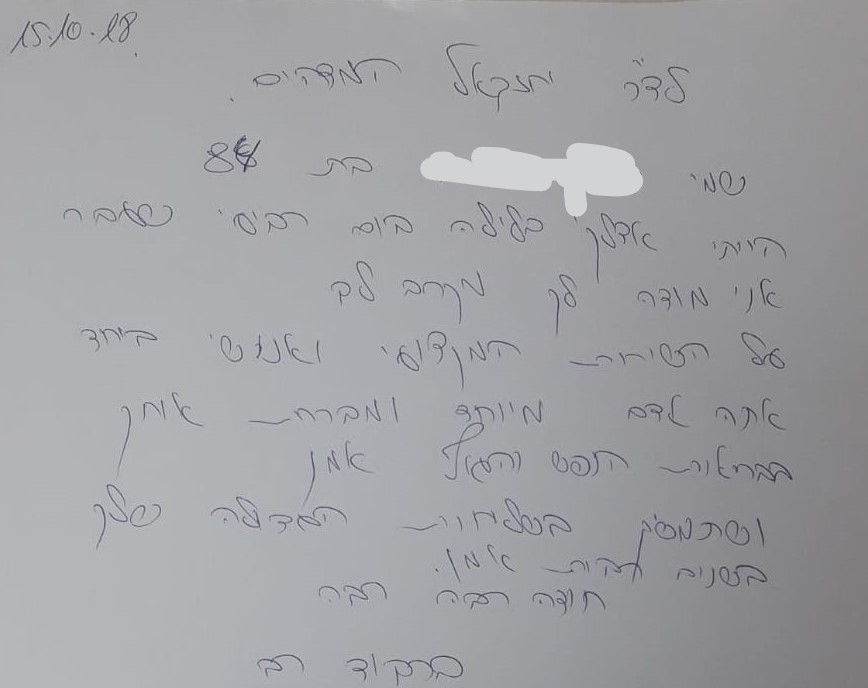 15.10.18
לד"ר יחזקאל המדהים.
שמי בת 84
הייתי אצלך בלילה ביום חמישי שעבר
אני מודה לך מקרב לב
על השירות המקצועי ואנושי ביחד
אתה אדם מיוחד ומברכת אותך
בבריאות הנפש והגוף אמן
ושתמשיך בשליחות הגדולה שלך
בשנים רבות אמן.
תודה רבה רבה
בכבוד רב